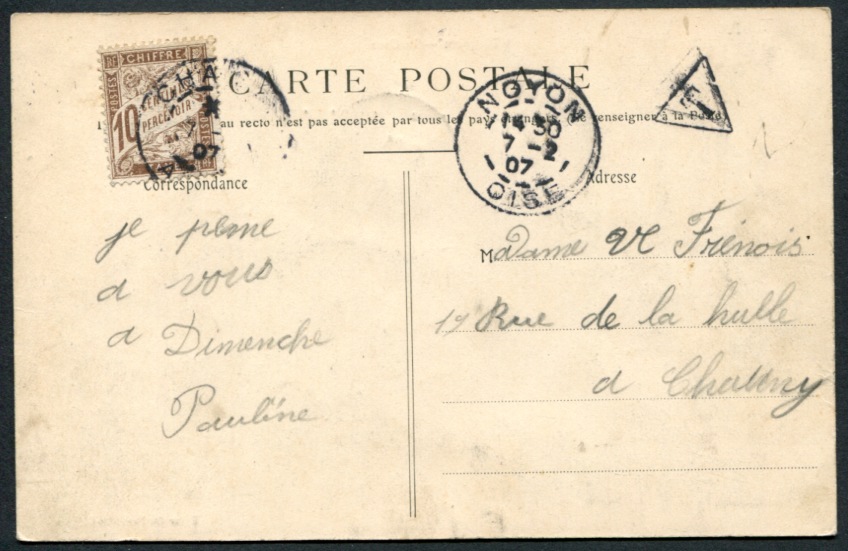 CARTE POSTALE
POSTES
CHIFFRE
10
PERCEVOIR
CHA
07
NOYON
7 - 2
07
OISE
T
au recto n'est pas acceptée par tous les pays étrangers. (Se renseigner à la Poste)
Correspondance
Adresse
je pense
a vous
a Dimenche
Pauline
Madame Ve Frénois
19 Rue de la hulle
a Chauny